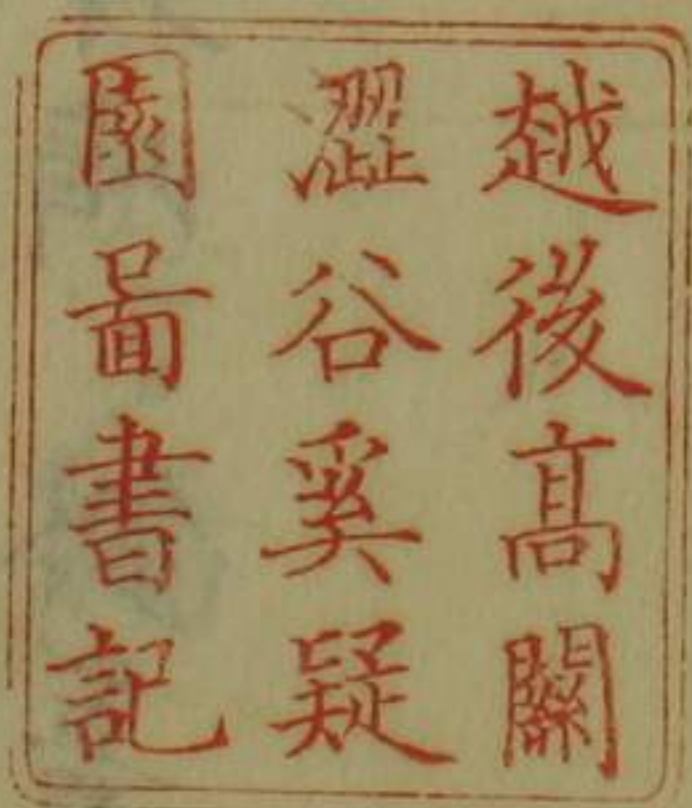 越後髙關
澀谷奚疑
園啚書記